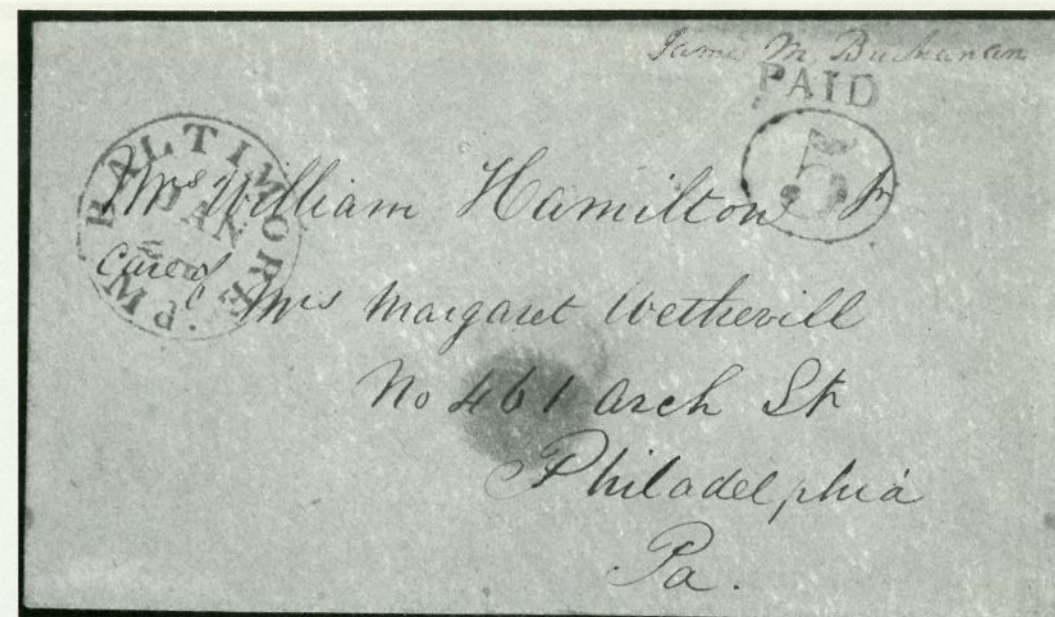 James M. Buchanan
PAID
5
BALTIMORE
JAN
Md.
Mrs William Hamilton Jr
Care of Mrs Margaret Wetherill
No 461 Arch St
Philadelphia
Pa.